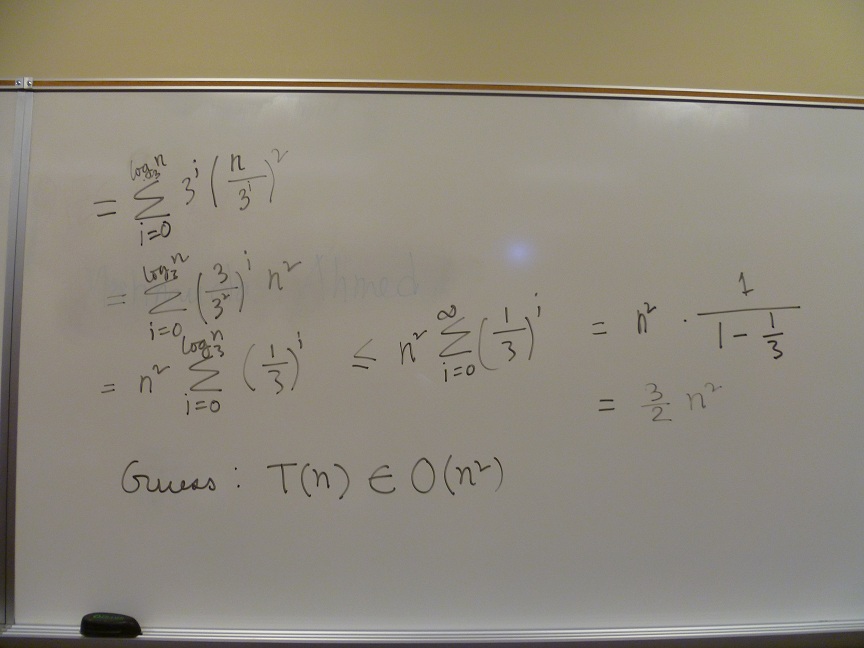 = ∑_{i=0}^{log_3 n} 3^i (n/3^i)^2
= ∑_{i=0}^{log_3 n} (3/3^2)^i n^2
= n^2 ∑_{i=0}^{log_3 n} (1/3)^i ≤ n^2 ∑_{i=0}^{∞} (1/3)^i = n^2 · 1/(1 - 1/3)
= 3/2 n^2
Guess: T(n) ∈ O(n^2)